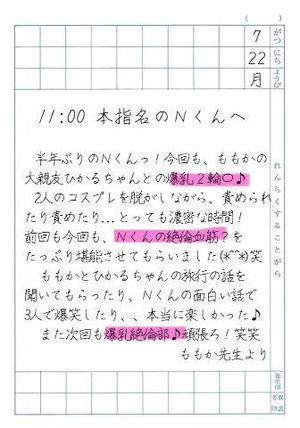 ( )
7
がつ
22
にち
月
ようび
れんらくすることがら
11:00 本指名のNくんへ
半年ぶりのNくんっ！今回も、ももかの
大親友ひかるちゃんとの爆乳2輪〇♪
2人のコスプレを脱がしながら、責められ
たり責めたり...とっても濃密な時間！
前回も今回も、Nくんの絶倫血筋？を
たっぷり堪能させてもらいました(*ˊᵕˋ*)笑
ももかとひかるちゃんの旅行の話を
聞いてもらったり、Nくんの面白い話で
3人で爆笑したり、、本当に楽しかった♪
また次回も爆乳絶倫部♪頑張ろ！笑笑
ももか先生より